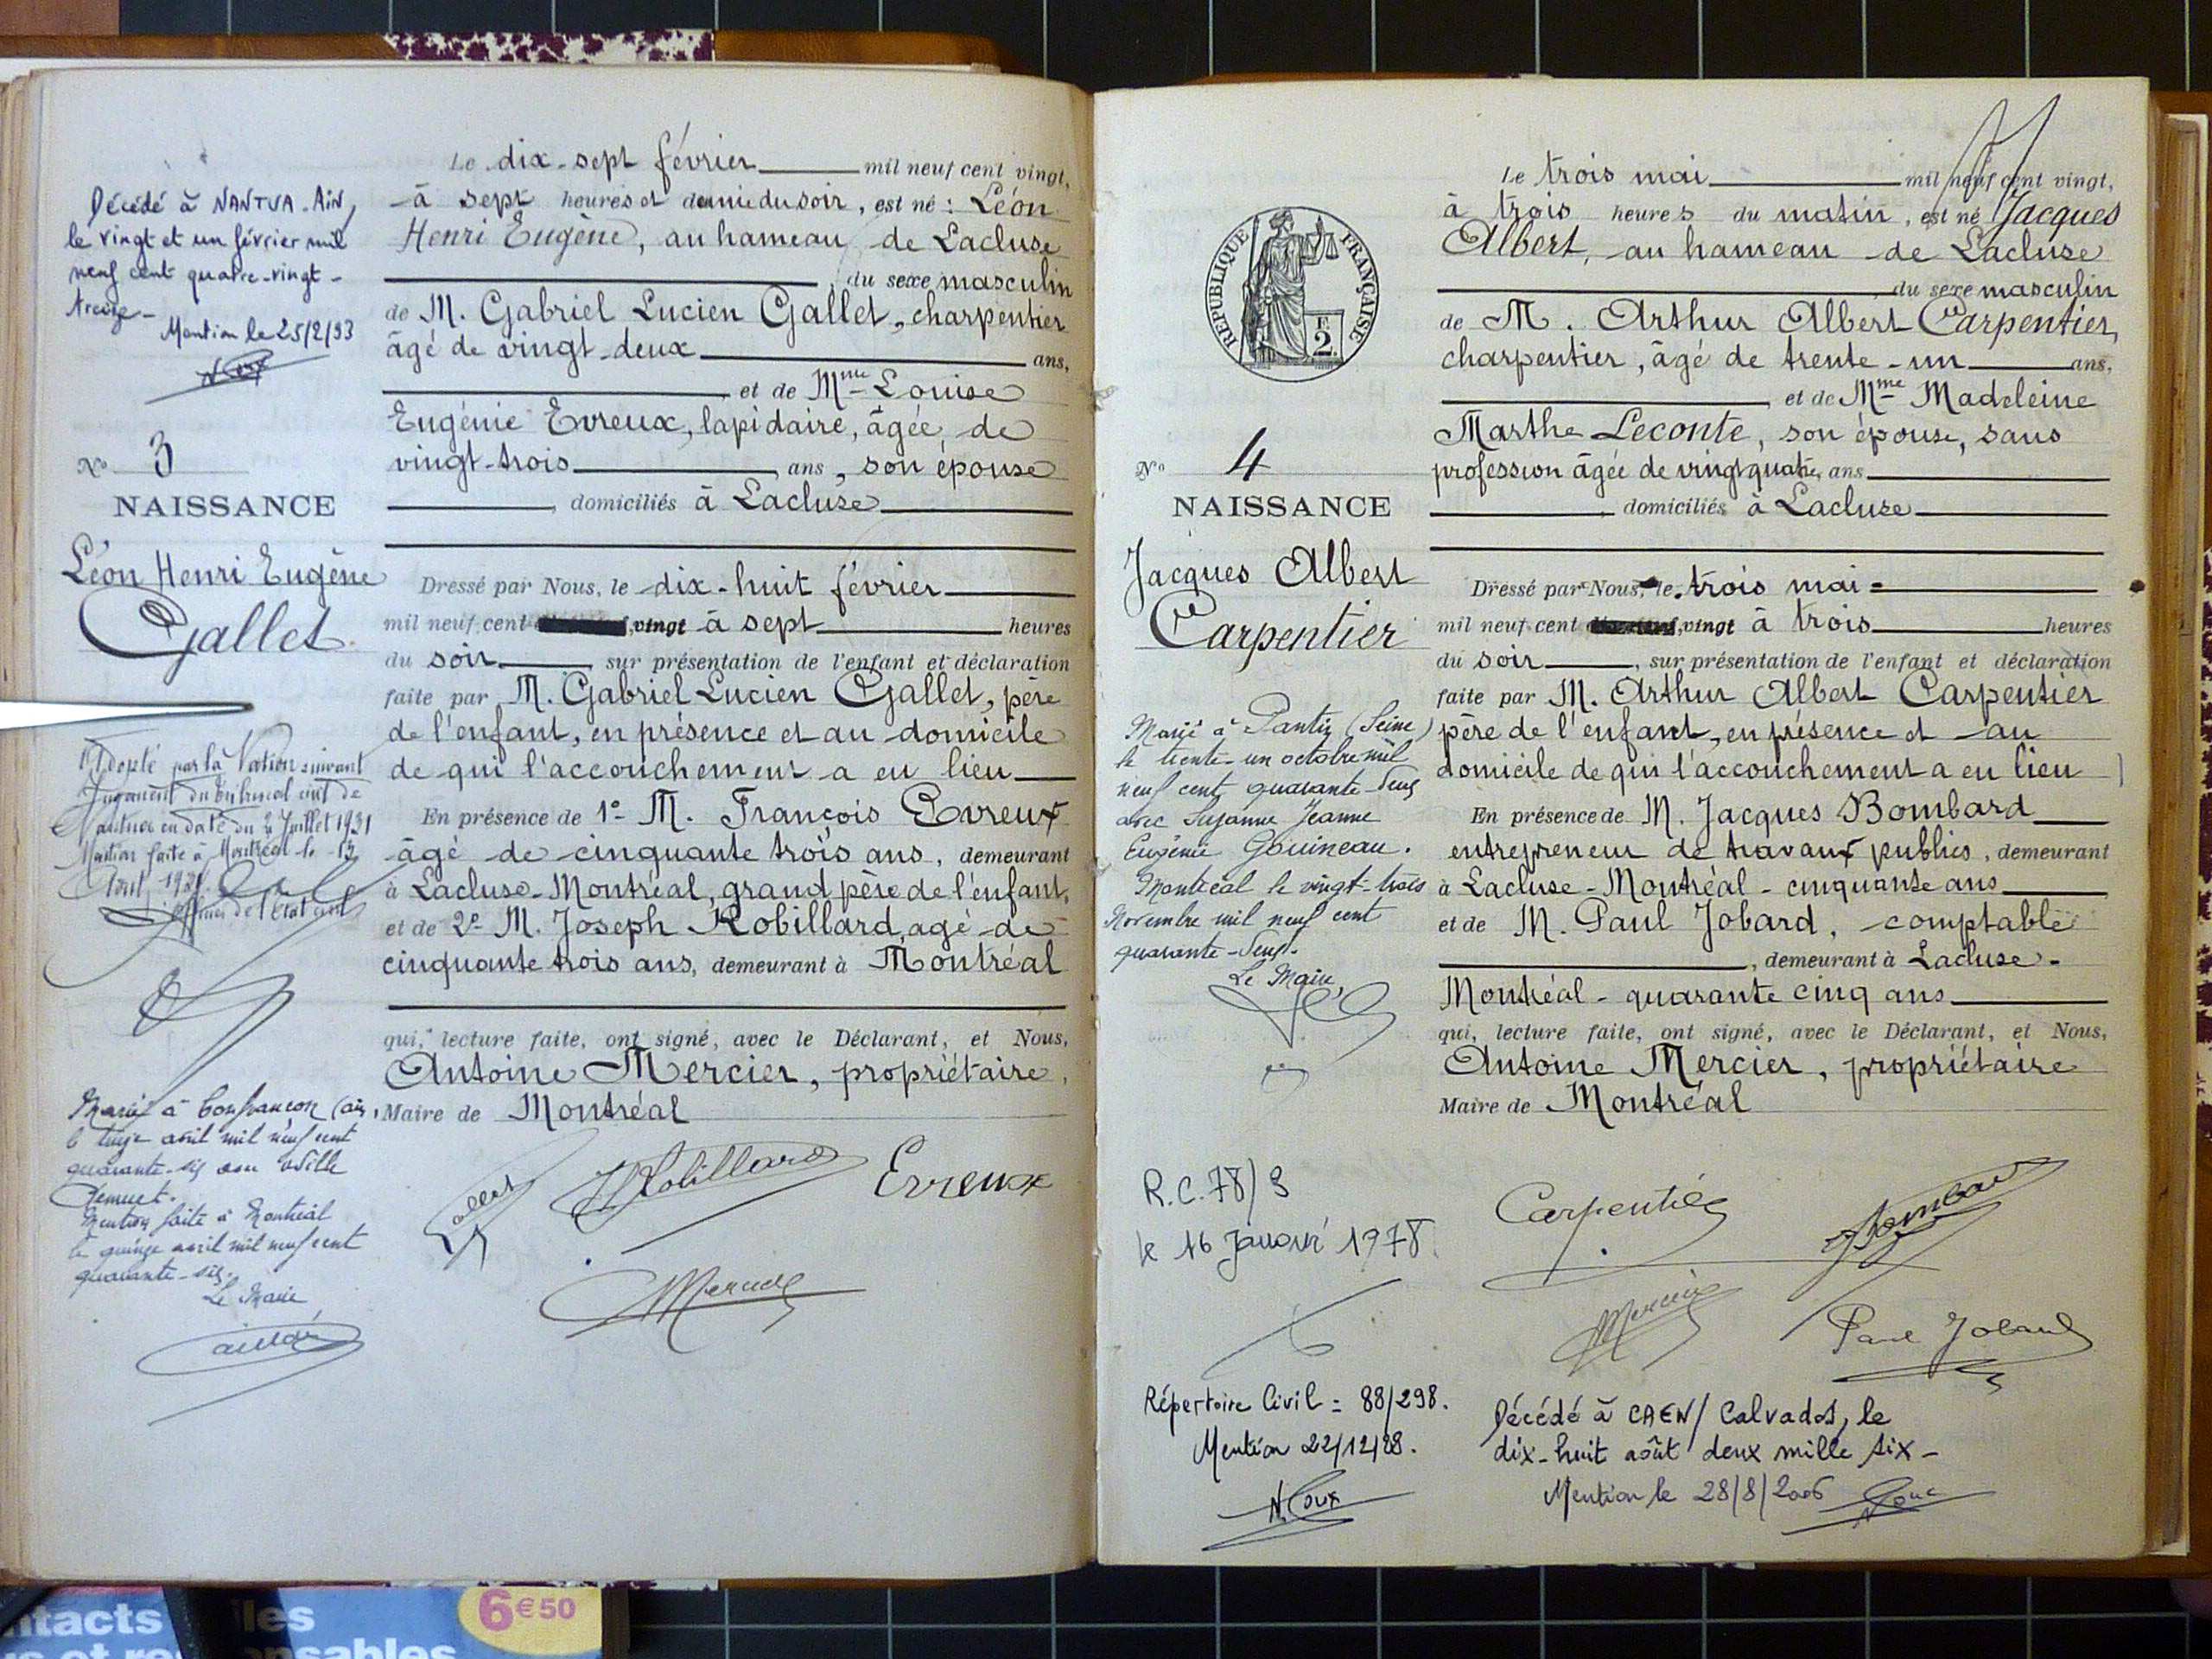 Décédé à NANTUA-AIN,
le vingt et un février mil
neuf cent quatre-vingt-
treize-
Mention le 25/2/93
N° 3
NAISSANCE
Léon Henri Eugène
Gallet
Adopté par la Nation suivant
Jugement du tribunal civil de
Nantua en date du 2 Juillet 1931
Mention faite à Montréal le 13
Août 1931.
Officier de l'Etat civil
Marié à Confrançon (ain)
le treize avril mil neuf cent
quarante-six avec Odille
Mention faite à Montréal
le quinze avril mil neuf cent
quarante-six.
Le Maire
Le dix-sept février mil neuf cent vingt,
à sept heures et demie du soir, est né : Léon
Henri Eugène, au hameau de Lacluse
, du sexe masculin
de M. Gabriel Lucien Gallet, charpentier
âgé de vingt-deux ans,
et de Mme Louise
Eugénie Evreux, lapidaire, âgée de
vingt-trois ans, son épouse
, domiciliés à Lacluse
Dressé par Nous, le dix-huit février
mil neuf cent vingt à sept heures
du soir, sur présentation de l'enfant et déclaration
faite par M. Gabriel Lucien Gallet, père
de l'enfant, en présence et au domicile
de qui l'accouchement a eu lieu
En présence de 1° M. François Evreux
âgé de cinquante trois ans, demeurant
à Lacluse-Montréal, grand père de l'enfant,
et de 2° M. Joseph Robillard, agé de
cinquante trois ans, demeurant à Montréal
qui, lecture faite, ont signé, avec le Déclarant, et Nous,
Antoine Mercier, propriétaire,
Maire de Montréal
Gallet
J Robillard
Evreux
Mercier
RÉPUBLIQUE FRANÇAISE
2 F
N° 4
NAISSANCE
Jacques Albert
Carpentier
Marié à Pantin (Seine)
le trente-un octobre mil
neuf cent quarante-deux
avec Suzanne Jeanne
Eugénie Gouineau.
Montréal le vingt-trois
Novembre mil neuf cent
quarante-deux.
Le Maire,
R.C. 78/9
le 16 Janvier 1978.
Répertoire Civil = 88/298.
Mention 22/12/88.
N. Roux
Le trois mai mil neuf cent vingt,
à trois heures du matin, est né Jacques
Albert, au hameau de Lacluse
, du sexe masculin
de M. Arthur Albert Carpentier,
charpentier, âgé de trente-un ans,
et de Mme Madeleine
Marthe Leconte, son épouse, sans
profession âgée de vingt quatre ans
domiciliés à Lacluse
Dressé par Nous, le trois mai
mil neuf cent vingt à trois heures
du soir, sur présentation de l'enfant et déclaration
faite par M. Arthur Albert Carpentier
père de l'enfant, en présence et au
domicile de qui l'accouchement a eu lieu
En présence de M. Jacques Bombard
entrepreneur de travaux publics, demeurant
à Lacluse-Montréal - cinquante ans
et de M. Paul Jobard, comptable
, demeurant à Lacluse-
Montréal - quarante cinq ans
qui, lecture faite, ont signé, avec le Déclarant, et Nous,
Antoine Mercier, propriétaire
Maire de Montréal
Carpentier
Bombard
Mercier
Paul Jobard
Décédé à CAEN/Calvados, le
dix-huit août deux mille six-
Mention le 28/8/2006
ntacts
les
6€50